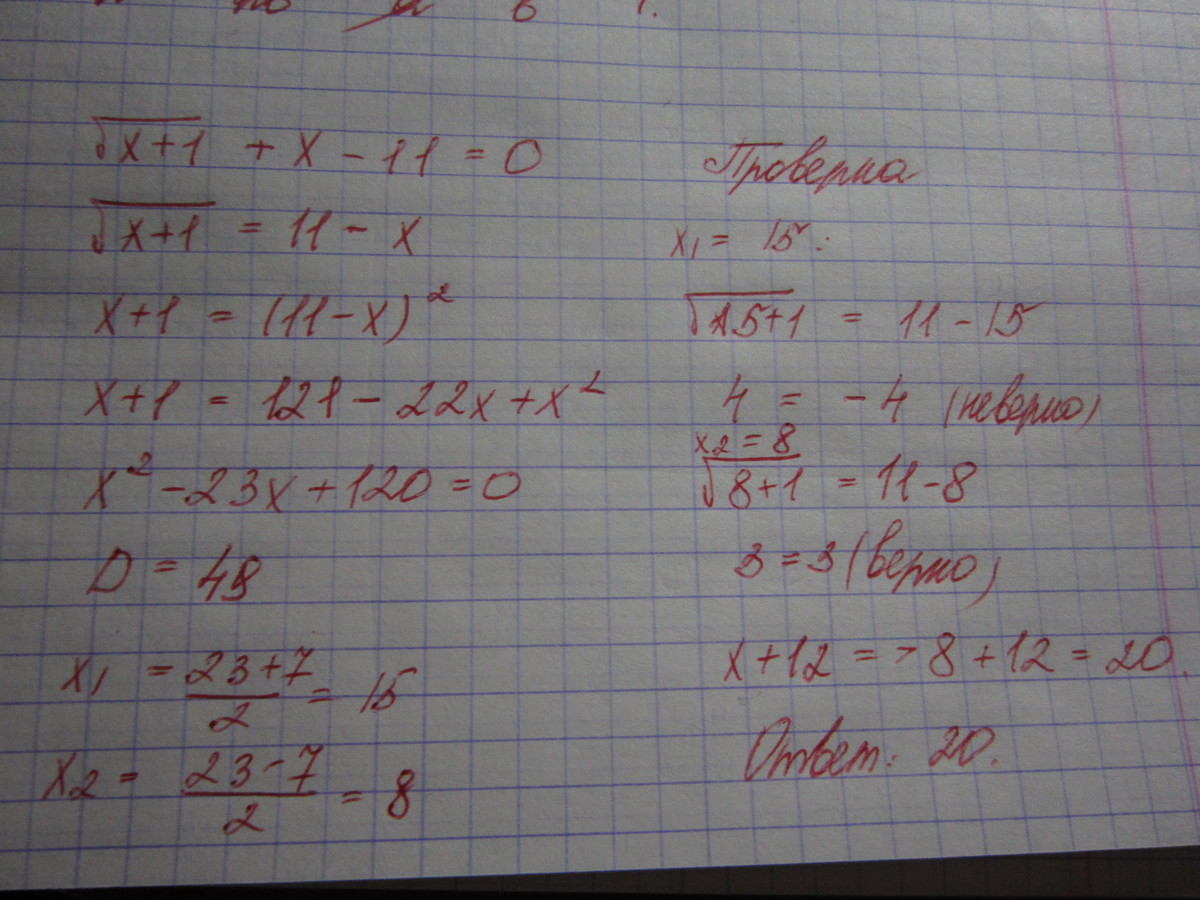 √x+1 + x - 11 = 0
√x+1 = 11 - x
x+1 = (11-x)²
x+1 = 121 - 22x + x²
x² - 23x + 120 = 0
D = 49
x₁ = 23+7/2 = 15
x₂ = 23-7/2 = 8
Проверка
x₁ = 15:
√15+1 = 11 - 15
4 = -4 (неверно)
x₂ = 8
√8+1 = 11-8
3 = 3 (верно)
x+12 = -8+12 = 20.
Ответ: 20.